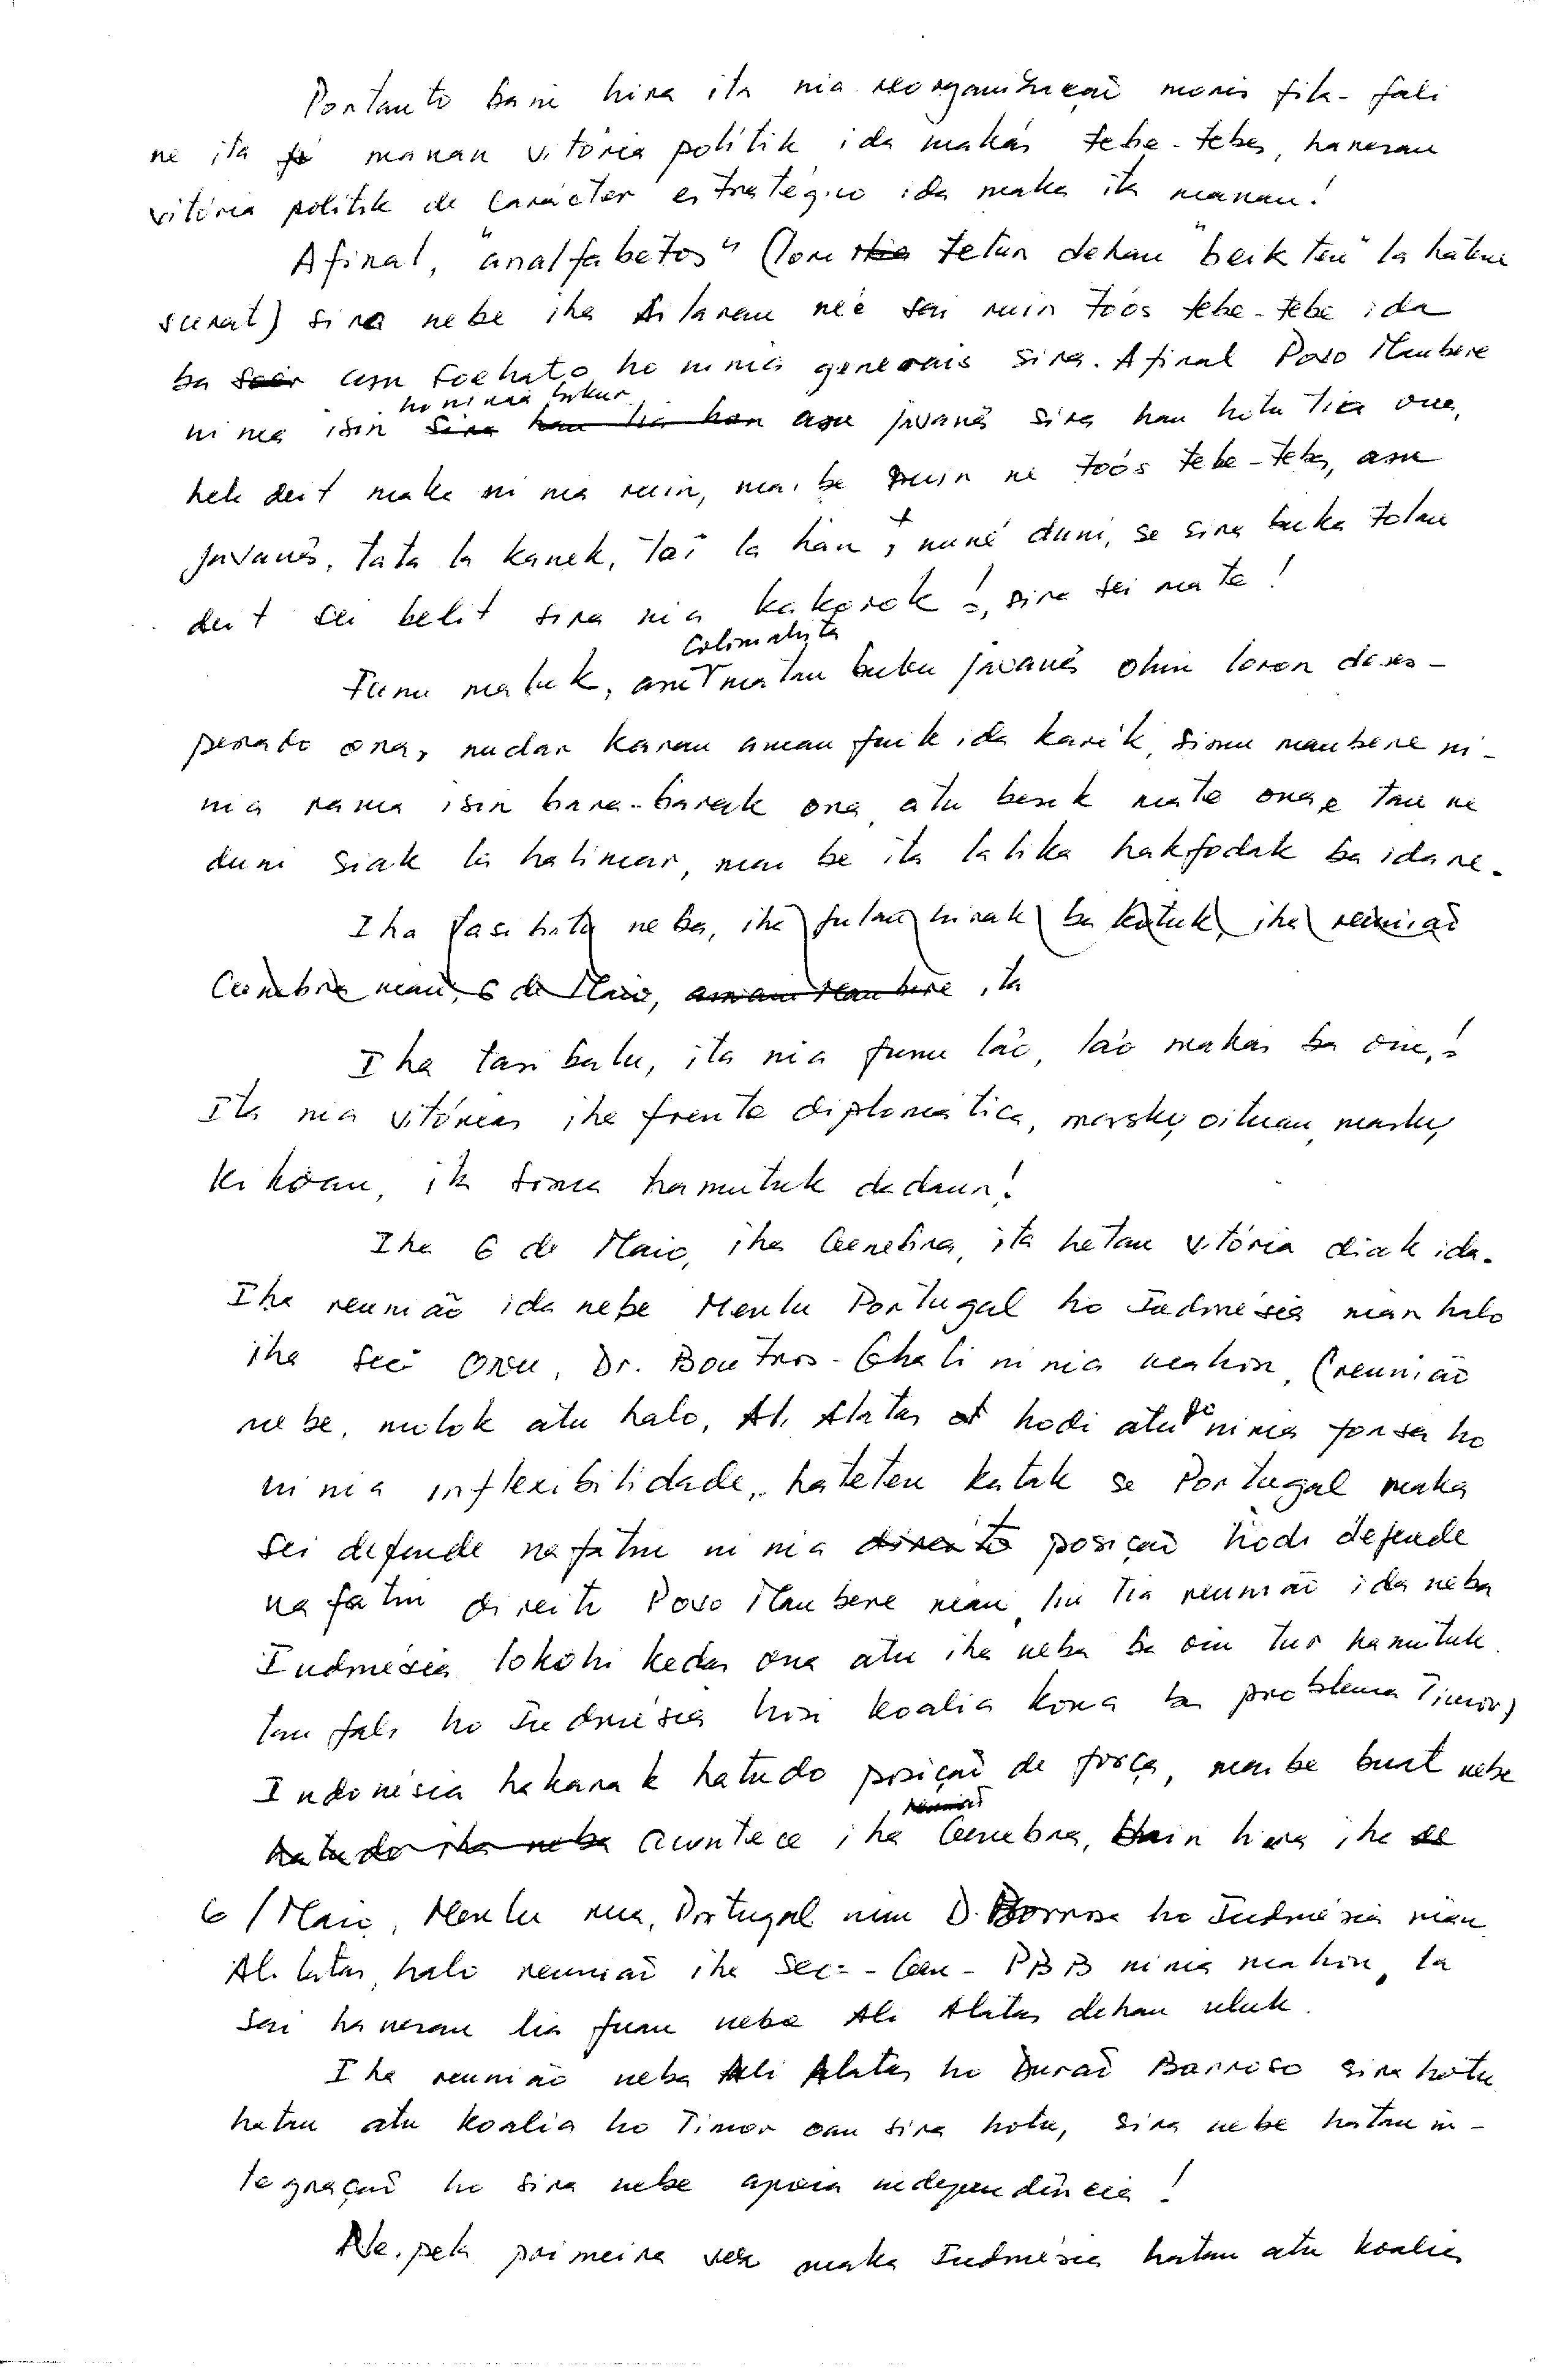 Portanto bain hira ita nia reorganização moris fila-fali
ne ita manan vitória politik ida makás tebe-tebes, hanesan
vitória politik de carácter estratégico ida maka ita manan!
Afinal, "analfabetos" (lori tetun dehan "beik ten" la hatene
surat) sira nebe iha Ai laran ne'e sai ruin toós tebe-tebe ida
ba asu Soeharto ho ninia generais sira. Afinal Povo Maubere
ho ninia bokur
ninia isin asu javanês sira han hotu tia ona,
hela deit maka ninia ruin, mai be ruin ne toós tebe-tebes, asu
javanês, tata la kanek, la han, nuné duni, se sira buka tolan
deit sei belit sira nia kakorok!, sira sei mate!
colonialista
Funu maluk, asu matan buku javanês ohin loron deses-
perado ona, nudar karau aman fuik ida karik, simu maubere ni-
nia rama isin bara-barak ona, atu besik mate ona, tan ne
duni siak la halimar, mai be ita lalika hakfodak ba ida ne.
Iha tasi balu neba, iha fulan hirak ba kotuk, iha reunião
Genebra nian, 6 de Maio, ita
Iha tasi balu, ita nia funu lâo, lâo makas ba oin!
Ita nia vitórias iha frente diplomática, maski oituan, maski
kikoan, ita soma hamutuk dadaun!
Iha 6 de Maio, iha Genebra, ita hetan vitória diak ida.
Iha reunião ida nebe Menlu Portugal ho Indonésia nian halo
iha Sec. ONU, Dr. Boutros-Ghali ninia mahon, (reunião
nebe, molok atu halo, Al. Alatas hodi atu ninia forsa ho
ninia inflexibilidade, hateten katak se Portugal maka
sei defende nafatin ninia posição hodi defende
nafatin direito Povo Maubere nian, liu tia reunião ida neba
Indonésia lokohi kedas ona atu iha neba ba oin tur hamutuk
tan fali ho Indonésia hosi koalia kona ba problema Timor)
Indonésia hakarak hatudo posição de força, mai be buat nebe
acontece iha Genebra, bain hira iha
6/Maio, Menlu rua, Portugal nian D. Barroso ho Indonésia nian
Al. Alatas, halo reunião iha Sec.-Gen-PBB ninia mahon, la
sai hanesan lia fuan nebe Ali Alatas dehan uluk.
Iha reunião neba Ali Alatas ho Durão Barroso sira hotu
hatan atu koalia ho Timor oan sira hotu, sira nebe hatan in-
tegração ho sira nebe apoia independência!
Ne, pela primeira vez maka Indonésia hatan atu koalia